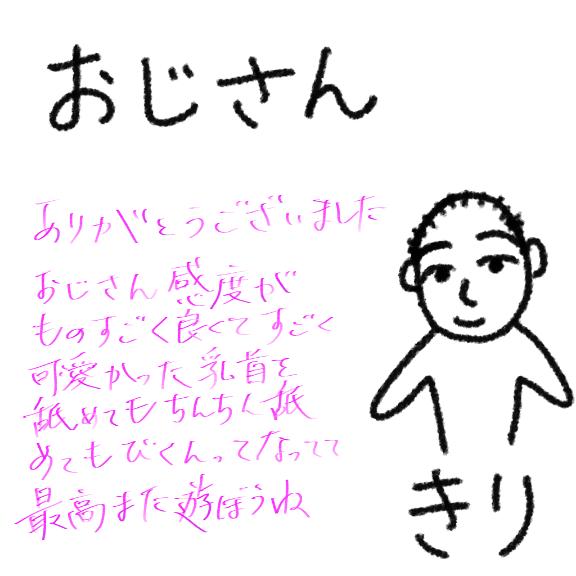 おじさん
ありがとうございました
おじさん感度が
ものすごく良くてすごく
可愛かった乳首を
舐めてもちんちん舐
めてもびくんってなってて
最高また遊ぼうね
きり